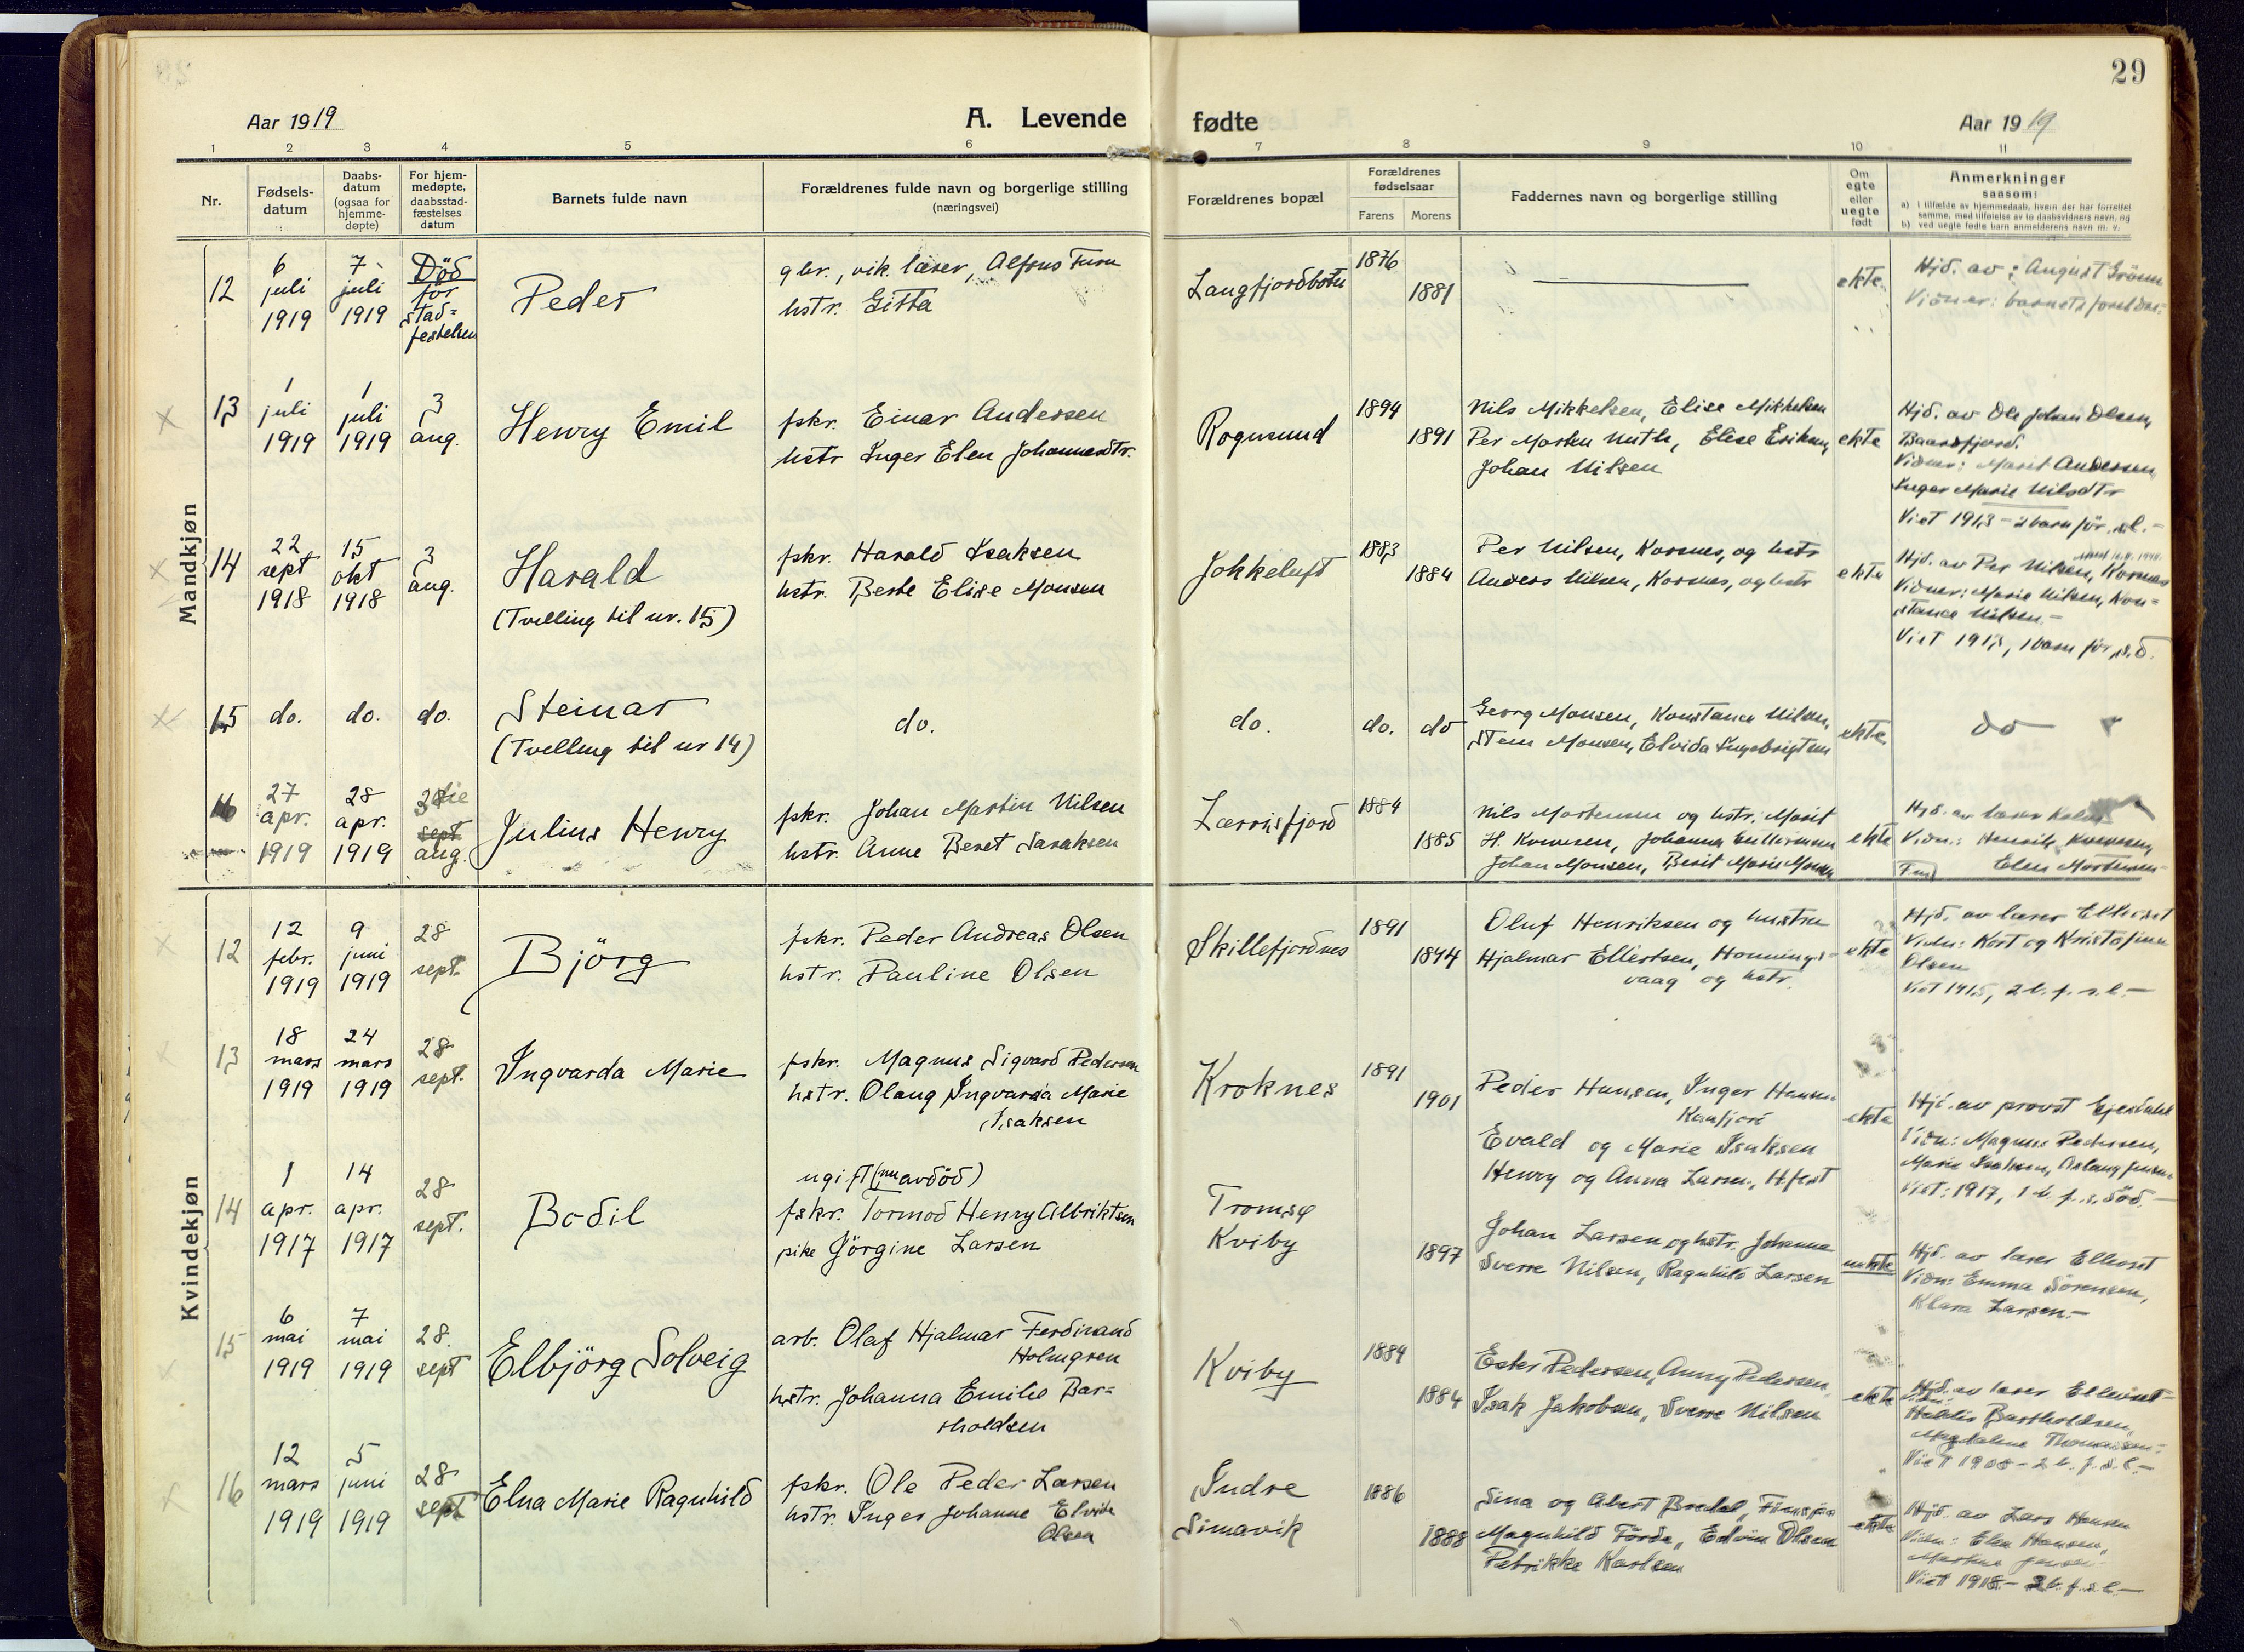 29
Aar 1919
A. Levende
fødte
Aar 1919
1 2 3 4 5 6 7 8 9 10 11
Nr.
Fødsels-
datum
Daabs-
datum
(ogsaa for
hjemme-
døpte)
For hjem-
medøpte,
daabsstad-
fæstelses
datum
Barnets fulde navn
Forældrenes fulde navn og borgerlige stilling
(næringsvei)
Forældrenes bopæl
Forældrenes
fødselsaar
Farens Morens
Faddernes navn og borgerlige stilling
Om
egte
eller
uegte
født
Anmerkninger
saasom:
a) i tilfælde av hjemmedaab, hvem der har forrettet
samme, med tilføielse av to daabsvidners navn, og
b) ved uegte fødte barn anmelderens navn m. v.
Mandkjøn
12
6
juli
1919
7
juli
1919
Död
før
stad=
festelsen
Peder
gbr., vik. lærer, Alfons
hstr. Gitta
Langfjordbotn
1876
1881
ekte
Hjd. av: August Grönn
Vidner: barnets foreldre
13
1
juli
1919
1
juli
1919
3
aug.
Henry Emil
fskr. Einar Andersen
hstr Inger Elen Johannesdtr.
Rognsund
1894
1891
Nils Mikkelsen, Elise Mikkelsen
Per Morten Muth, Elise Eriksen,
Johan Nilsen
ekte
Hjd. av Ole Johan Olsen,
Baarsfjord.
Vidner: Marit Andersen
Inger Marie Nilsdtr
Viet 1913 - 2 barn før, s.l. -
14
22
sept
1918
15
okt
1918
3
aug.
Harald
(Tvilling til nr. 15)
fskr. Harald Isaksen
hstr. Berte Elise Monsen
Jokkeluft
1883
1884
Per Nilsen, Korsnes, og hstr
Anders Nilsen, Korsnes, og hstr
ekte
Hjd. av Per Nilsen, Korsnes
Vidner: Marie Nilsen, Kon=
stance Nilsen. -
Viet 1917, 1 barn før, s.d.
15
do.
do.
do.
Steinar
(Tvilling til nr 14)
do.
do.
do.
do
Georg Monsen, Konstance Nilsen,
Sten Monsen, Elvida Ingebrigtsen
ekte.
do
16
27
apr.
1919
28
apr.
1919
sept
aug.
Julius Henry
fskr. Johan Martin Nilsen
hstr. Anne Beret Saraksen
Lærrisfjord
1884
1885
Nils Mortensen og hstr. Marit
H. Kvænsen, Johanna
Johan Monsen, Berit Marie Monsen
ekte
Hjd. av lærer
Vidn.: Henrik Kvænsen,
Elen Mortensen
Kvindekjøn
12
12
febr.
1919
9
juni
1919
28
sept.
Björg
fskr. Peder Andreas Olsen
hstr. Pauline Olsen
Skillefjordnes
1891
1894
Oluf Henriksen og hustru
Hjalmar Ellertsen, Honnings=
vaag og hstr.
ekte
Hjd. av lærer Ellevset
Vidn: Kort og Kristofine
Olsen
Viet 1915, 2 b. f. s. l. -
13
18
mars
1919
24
mars
1919
28
sept.
Ingvarda Marie
fskr. Magnus Sigvard Pedersen
hstr. Olaug Ingvarda Marie
Isaksen
Kroknes
1891
1901
Peder Hansen, Inger Hansen
Kaafjord
Evald og Marie Isaksen
Henry og Anna Larsen, Hfest
ekte
Hjd. av provst Gjerdahl
Vidn: Magnus Pedersen,
Marie Isaksen, Aslaug Jensen
Viet: 1917, 1 b. f. s. död. -
14
1
apr.
1917
14
apr.
1917
28
sept.
Bodil
ugift (nu avdöd)
fskr. Tormod Henry Albriktsen
pike Jörgine Larsen
Tromsø
Kviby
1897
Johan Larsen og hstr. Johanna
Sverre Nilsen, Ragnhild Larsen
uekte
Hjd. av lærer Ellevset
Vidn: Emma Sörensen,
Klara Larsen. -
15
6
mai
1919
7
mai
1919
28.
sept
Elbjörg Solveig
arb. Olaf Hjalmar Ferdinand
Holmgren
hstr. Johanna Emilie Bar=
tholdsen
Kviby
1884
1884
Ester Pedersen, Anny Pedersen,
Isak Jakobsen, Sverre Nilsen
ekte
Hjd. av lærer Ellevset -
Vidn:
Hedlis Bartholdsen,
Magdalene Thomassen. -
Viet 1908 - 2 b. f. s. l. -
16
12
mars
1919
5
juni
1919
28
sept.
Elna Marie Ragnhild
fskr. Ole Peder Larsen
hstr. Inger Johanne Elvide
Olsen
Indre
Simavik
1886
1888
Sina og Albert Bredal,
Magnhild Förde, Edvin Olsen
Petrikke Karlsen
ekte
Hjd. av Lars Hansen
Vidn: Elen Hansen,
Martha Jensen
Viet 1918. - 3 b. f. s. l. -